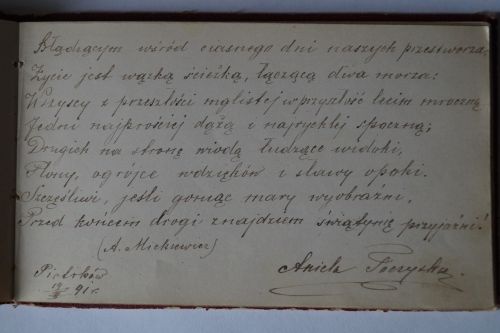 Błądzącym wśród ciasnego dni naszych przestworza
Życie jest wązką ścieżką, łączącą dwa morza:
Wszyscy z przeszłości mglistej w przyszłość lecim mroczną
Jedni najprościej dążą i najrychlej spoczną;
Drugich na stronę wiodą łudzące widoki,
Plony, ogrójce wdzięków i sławy opoki.
Szczęśliwi, jeśli goniąc mary wyobraźni,
Przed końcem drogi znajdziem świątynię przyjaźni!
(A. Mickiewicz)
Aniela
Piotrków
91 r.